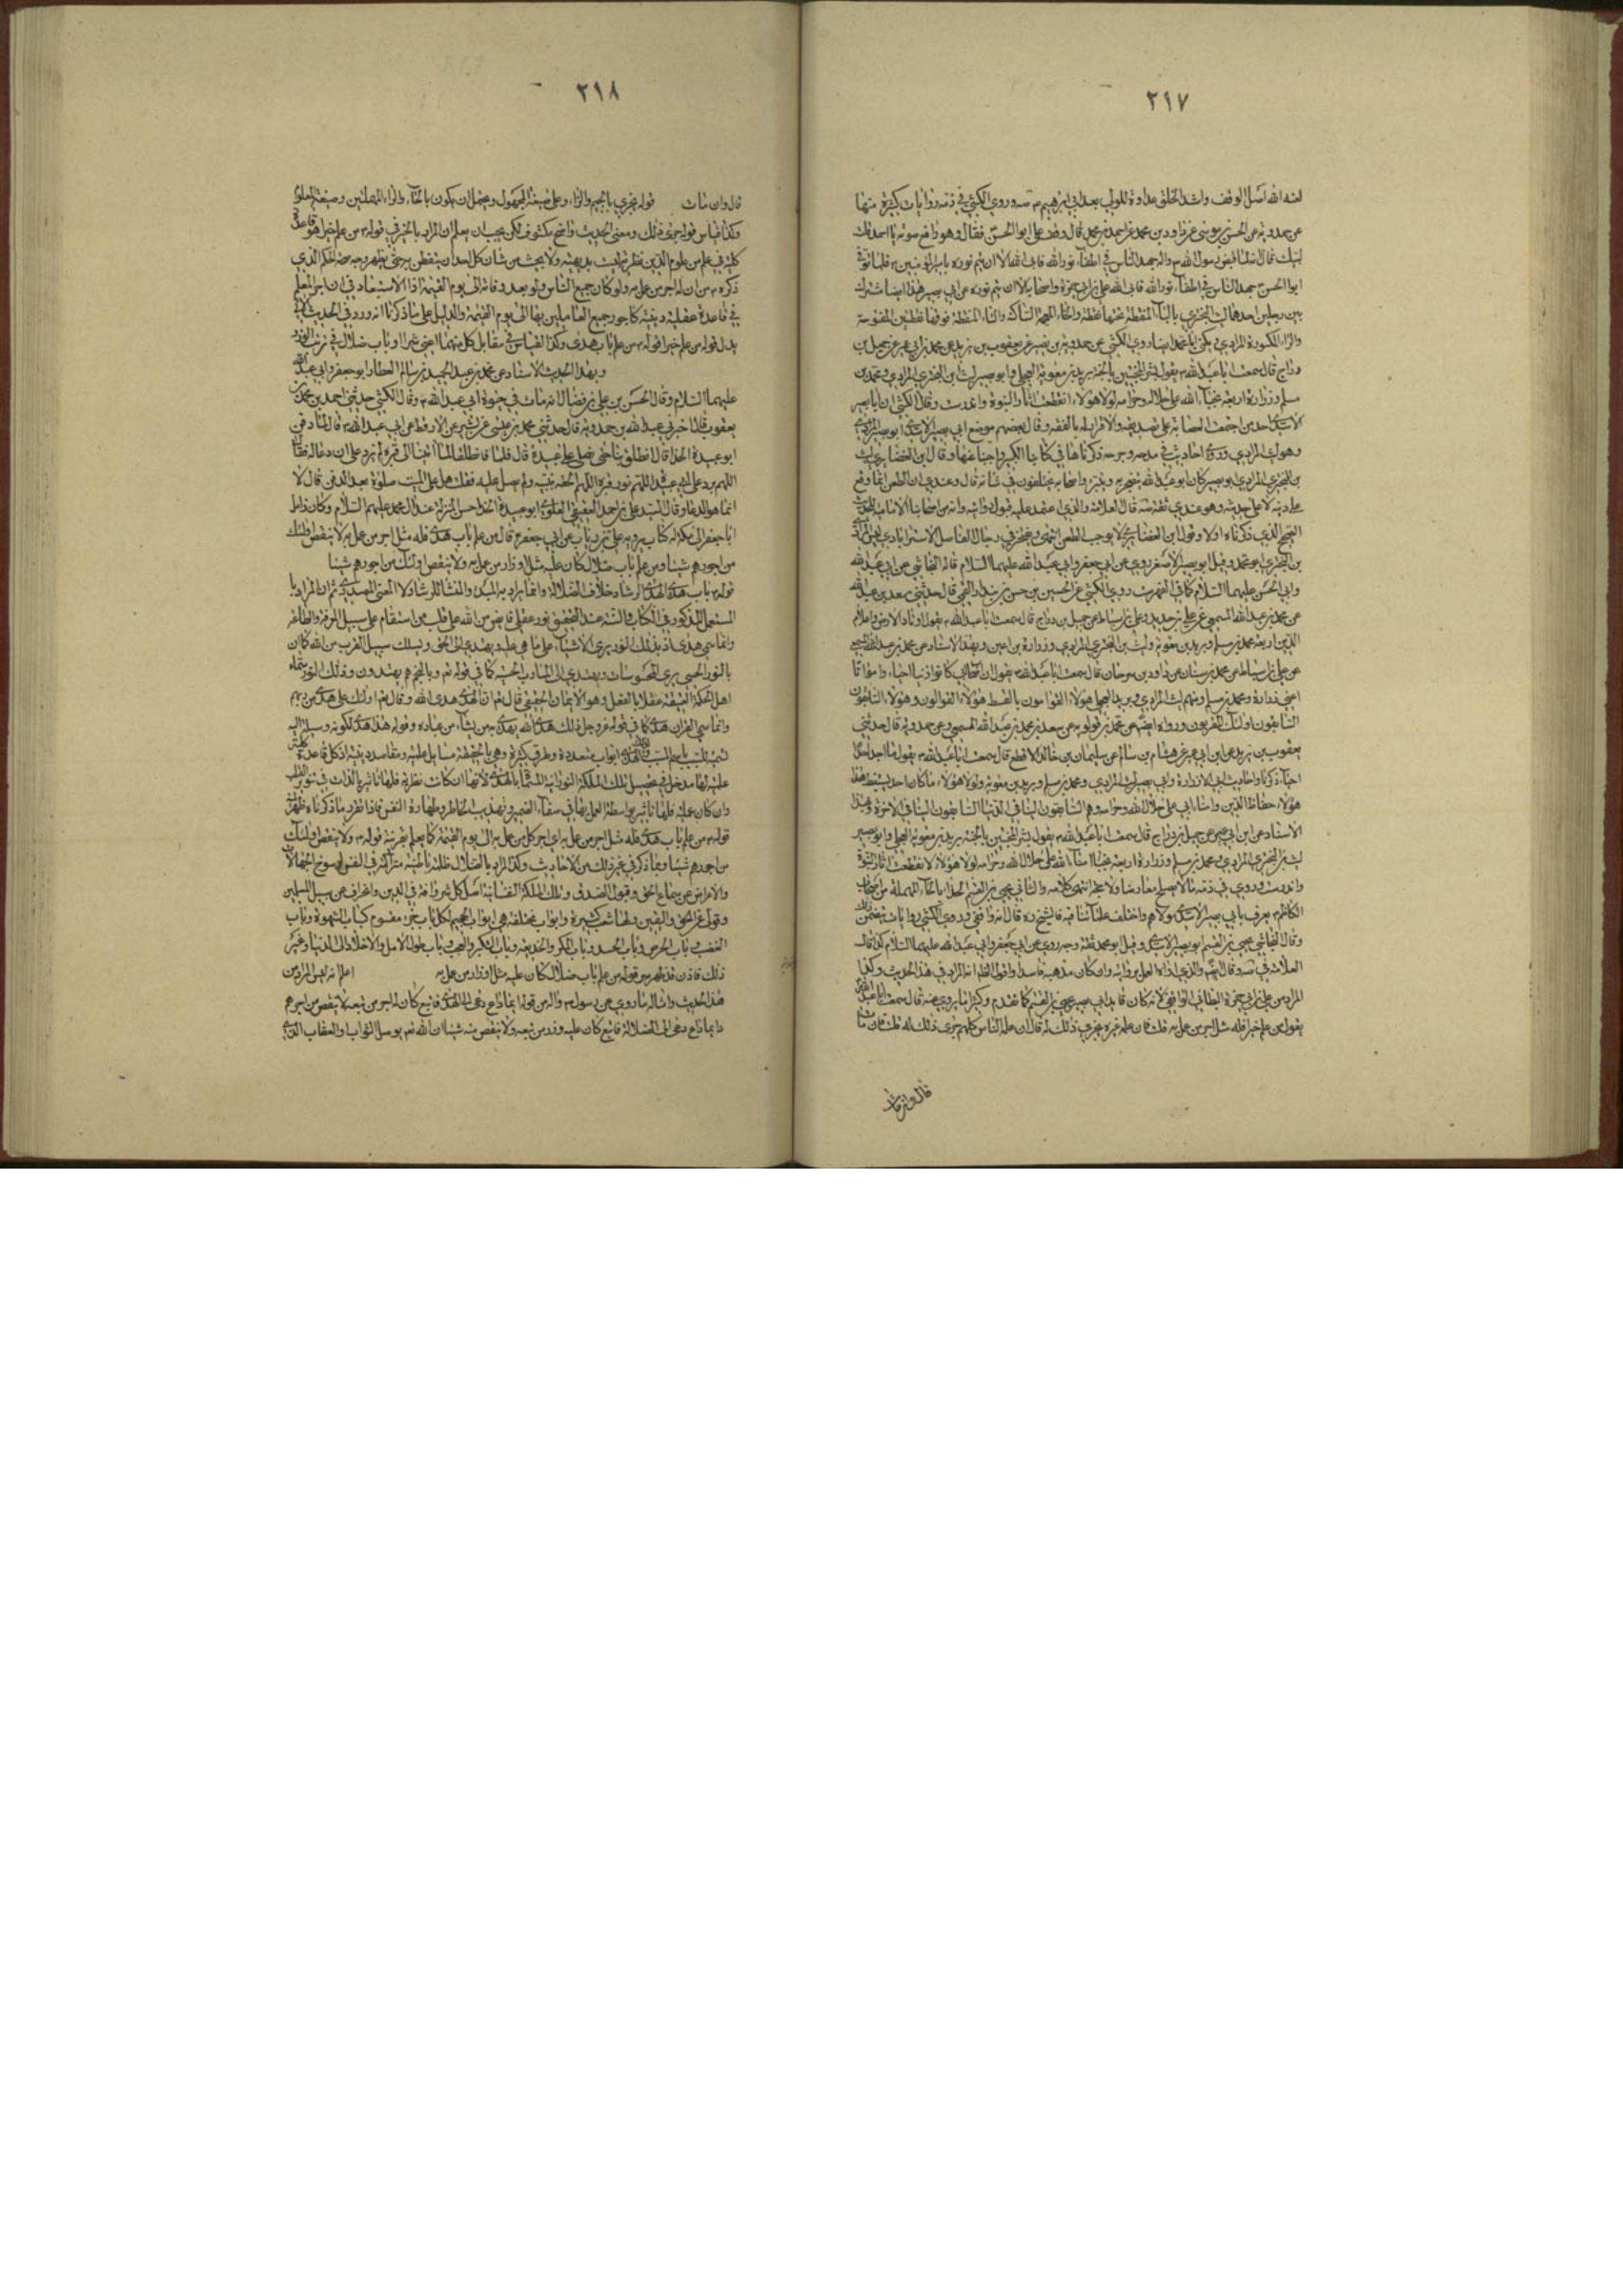 ٢١٧
لعنه الله اصل الوقف واشد الخلق عداوة للولي بعد ابي ابرهيم م وروى الكشي في ذمه روايات كثيرة منها
عن حمدويه عن الحسن بن موسى عن داود بن محمد عن احمد بن محمد قال وقف علي ابو الحسن فقال وهو رافع صوته يا احمد قلت
لبيك قال انه لما قبض رسول الله جهد الناس في اطفاء نور الله فابى الله الا ان يتم نوره بامير المؤمنين فلما توفى
ابو الحسن جهد الناس في اطفاء نور الله فابى الله علي بن ابي حمزة واصحابه الا ان يتم نوره
بين رجلين احدهما ليث البختري بالباء المنقطة تحتها نقطة والخاء المعجمة الساكنة والتاء المنقطة فوقها نقطتين المفتوحة
والراء المكسورة المرادي ويكنى ابا محمد ايضا روى الكشي عن حمدويه بن نصير عن يعقوب بن يزيد عن محمد بن ابي عمير عن جميل بن
دراج قال سمعت ابا عبد الله م يقول بشر المخبتين بالجنة بريد بن معوية العجلي وابو بصير ليث ابن البختري المرادي ومحمد بن
مسلم وزرارة اربعة نجباء امناء الله على حلاله وحرامه لولا هؤلاء انقطعت اثار النبوة واندرست وقال الكشي ان ابا بصير
الاسدي احد من اجتمعت العصابة على تصديقه والاقرار له بالفقه وقال بعضهم موضع ابي بصير الاسدي ابو بصير المرادي
وهو ليث المرادي وروى احاديث في مدحه وجرحه ذكرناها في كتابنا الكبير واجبنا عنها وقال ابن الغضايري ليث
بن البختري المرادي ابو بصير كان ابو عبد الله يتضجر به ويتبرم واصحابه مختلفون في شانه قال وعندي ان الطعن انما وقع
على دينه لا على حديثه وهو عندي ثقة قال العلامة والذي اعتمد عليه قبول روايته وانه من اصحابنا الامامية للحديث
الصحيح الذي ذكرناه اولا وقول ابن الغضايري لا يوجب الطعن انتهى
بن البختري ابو محمد وقيل ابو بصير الاصغر روى عن ابي جعفر وابي عبد الله عليهما السلام قاله النجاشي
وابي الحسن عليهما السلام كما في الفهرست روى الكشي عن الحسين بن حسن بن بندار القمي قال حدثني سعد بن عبد الله
عن محمد بن عبد الله المسمعي عن علي بن حديد وعلي بن اسباط عن جميل بن دراج قال سمعت ابا عبد الله يقول اوتاد الارض واعلام
الدين اربعة محمد بن مسلم وبريد بن معوية وليث بن البختري المرادي وزرارة بن اعين وبهذا الاسناد عن محمد بن عبد الله المسمعي
عن علي بن اسباط عن محمد بن سنان عن داود بن سرحان قال سمعت ابا عبد الله يقول ان اصحاب ابي كانوا زينا احياء وامواتا
اعني زرارة ومحمد بن مسلم ومنهم ليث المرادي وبريد العجلي هؤلاء القوامون بالقسط هؤلاء القوالون وهؤلاء السابقون
السابقون اولئك المقربون ورواه ايضا عن محمد بن قولويه عن سعد بن محمد بن عبد الله المسمعي وعن حمدويه قال حدثني
يعقوب بن يزيد عن ابن ابي عمير عن هشام بن سالم عن سليمان بن خالد الاقطع قال سمعت ابا عبد الله يقول ما احد
احيا ذكرنا واحاديث ابي الا زرارة وابي بصير ليث المرادي ومحمد بن مسلم وبريد بن معوية ولولا هؤلاء ما كان احد يستنبط هذا
هؤلاء حفاظ الدين وامناء ابي على حلال الله وحرامه وهم السابقون الينا في الدنيا السابقون الينا في الاخرة وبهذا
الاسناد عن ابن ابي عمير عن جميل بن دراج قال سمعت ابا عبد الله يقول بشر المخبتين بالجنة بريد بن معوية العجلي وابو بصير
ليث بن البختري المرادي ومحمد بن مسلم وزرارة اربعة نجباء امناء الله على حلال الله وحرامه لولا هؤلاء لانقطعت اثار النبوة
واندرست وروى في ذمه ما لا يصلح معارضا والثاني يحيى بن القسم الحذا بالحاء المهملة من اصحاب
الكاظم يعرف بابي بصير الاسدي مولاهم واختلف علمائنا فيه فالشيخ ره قال انه واقفي وروى الكشي روايات تتضمن ذلك
وقال النجاشي يحيى بن القسم ابو بصير الاسدي وقيل ابو محمد ثقة وجيه روى عن ابي جعفر وابي عبد الله عليهما السلام
العلامة في والذي اراه العمل بروايته وان كان مذهبه فاسدا واقول الظ انه المراد في هذا الحديث وكذا
المراد من علي بن ابي حمزة البطائني الواقفي لانه كان قايد ابي بصير يحيى بن القسم كما تقدم وكثيرا ما يروي عنه قال سمعت ابا عبد الله
يقول من علم خيرا فله مثل اجر من عمل به قلت فان علمه غيره يجري ذلك له قال ان علمه الناس كلهم يجري ذلك له قلت فان مات
قال وان مات
٢١٨
قال وان مات قوله يجري بالجيم والراء وعلى صيغة المجهول ويحتمل ان يكون بالحاء والزاء المهملتين وصيغة المعلوم
وكذا قياس قوله جرى ذلك ومعنى الحديث واضح مكشوف لكن يجب ان يعلم ان المراد بالخير في قوله من علم خيرا هو قاعدة
كلية في علم من علوم الدين نظرية ليست بديهية ولا بحيث من شان كل احد ان يتفطن به حتى يظهر وجه صحة الحكم الذي
ذكره من ان له اجر من عمل به ولو كان جميع الناس ولو بعد وفاته الى يوم القيمة اذ لا استبعاد في ان اجر المعلم
في قاعدة عقلية دينية كاجور جميع العاملين بها الى يوم القيمة والدليل على ما ذكرنا انه ورد في الحديث الاتي
بدل قوله من علم خيرا قوله من علم باب هدى وكذا القياس في مقابل كل منهما اعني شرا او باب ضلال في ترتب الوزر
وبهذا الحديث الاسناد عن محمد بن عبد الحميد بن سالم العطار ابو جعفر
عليهما السلام وقال الحسن بن علي بن فضال انه مات في حيوة ابي عبد الله م وقال الكشي حدثني احمد بن محمد بن
يعقوب قال اخبرني عبد الله بن حمدويه قال حدثني محمد بن عيسى عن بشير عن الارقط عن ابي عبد الله قال لما دفن
ابو عبيدة الحذا قال انطلق بنا حتى نصلي على ابي عبيدة قال فانطلقنا فلما انتهينا الى قبره لم يزد على ان دعا له فقال
اللهم برد على ابي عبيدة اللهم نور قبره اللهم الحقه بنبيه ولم يصل عليه فقلت هل على الميت صلوة بعد الدفن قال لا
انما هو الدعاء وقال السيد علي بن احمد العقيقي العلوي ابو عبيدة الحذا حسن المنزلة عند ال محمد عليهم السلام وكان زامل
ابا جعفر الى مكة له كتاب يرويه علي بن رئاب عن ابي جعفر قال من علم باب هدى فله مثل اجر من عمل به ولا ينقص اولئك
من اجورهم شيئا ومن علم باب ضلال كان عليه مثل اوزار من عمل به ولا ينقص اولئك من اجورهم شيئا
قوله باب هدى الهدى الرشاد خلاف الضلالة وانما يراد به المبدء والمنشا للرشاد لا المعنى المصدري ثم ان المراد
المستعمل المذكور في الكتاب والسنة عند التحقيق نور عقلي فايض من الله على قلب من استقام على سبيل المعرفة والطاعة
وانما سمي هدى اذ بذلك النور يرى الاشياء على ما هي عليه ويهتدي الى الحق ويسلك سبيل القرب من الله كما ان
بالنور الحسي يرى المحسوسات ويهتدي الى المارب الحسية كما في قوله تع وبالنجم هم يهتدون وذلك النور سماه
اهل الحكمة العتيقة عقلا بالفعل وهو الايمان الحقيقي قال تعم ان الهدى هدى الله وقال تعم اولئك على هدى من ربهم
وانما سمي القران هدى كما في قوله عز وجل ذلك هدى الله يهدي به من يشاء من عباده وقوله هذا هدى لكونه وسيلة اليه
تسمية للسبب باسم المسبب ولذلك الهدى ابواب متعددة وطرق كثيرة وهي بالحقيقة مسايل علمية ومقاصد دينية اذ كل قاعدة كلية
علمية لها مدخل في تحصيل تلك الملكة النورانية المسماة بالهدى لانها ان كانت نظرية فلها تاثير بالذات في تنوير القلب
وان كان عملية فلها تاثير بواسطة العمل بها في صفاء الضمير وتهذيب الخاطر وطهارة النفس فاذا تقرر ما ذكرناه ظهر
قوله من علم باب هدى فله مثل اجر من عمل به اي اجر كل من عمل به الى يوم القيمة كما يعلم بقرينة قوله ولا ينقص اولئك
من اجورهم شيئا ومما ذكر في غير ذلك من الاحاديث وكذا المراد بالضلال ظلمة باطنية متراكمة في النفس
والاعراض عن سماع الحق وقبول الصدق وتلك الملكة النفسانية اصل كل شر وافة في الدين وانحراف عن سبيل المسلمين
وتول عن الحق واليقين ولها شعب كثيرة وابواب مختلفة هي ابواب الجحيم لكل باب جزء مقسوم كباب الشهوة وباب
الغضب وباب الحرص وباب الحسد وباب المكر والخديعة وباب الكبر والعجب وباب طول الامل والاخلاد الى الدنيا وغير
ذلك فاذن قد ظهر سر قوله من علم باب ضلال كان عليه مثل اوزار من عمل به اعلم انه ليس المراد من
هذا الحديث وامثاله ما روى عن رسول الله م واله من قوله ايما داع دعى الى الهدى فاتبع كان له اجر من تبعه لا ينقص من اجورهم
وايما داع دعى الى الضلالة فاتبع كان عليه وزر من تبعه ولا ينقص منه شيئا ان الله تعم يوصل الثواب والعقاب الذي